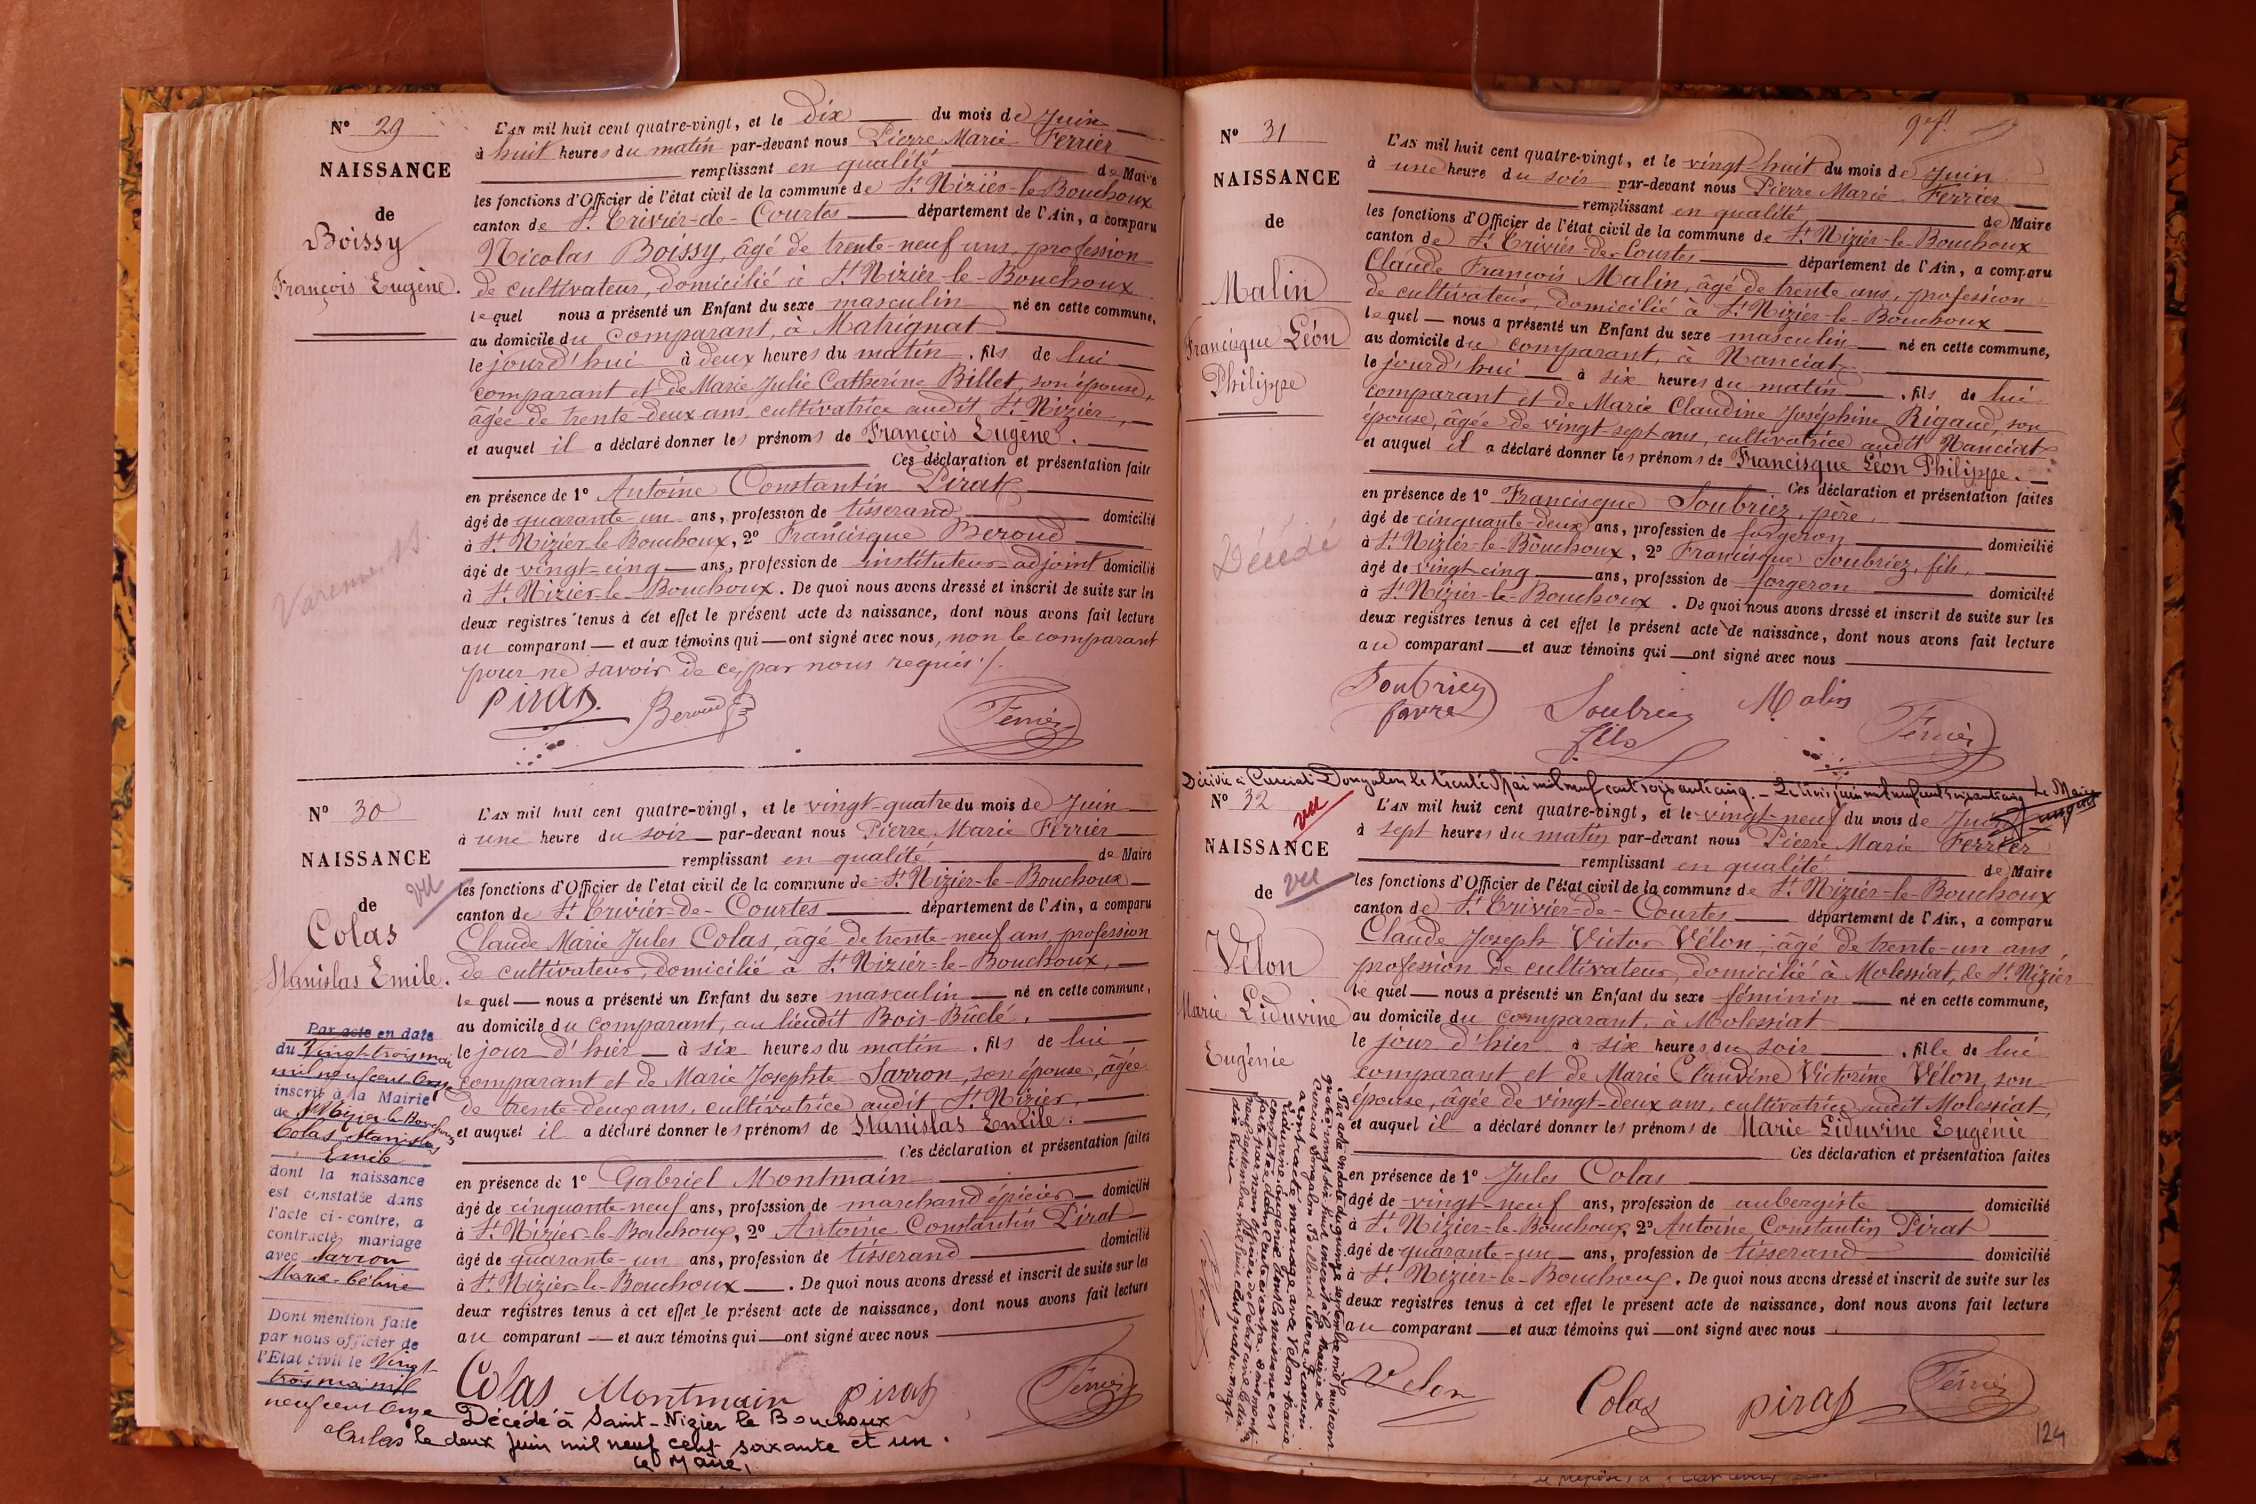 N° 29
NAISSANCE
de
Boissy
François Eugène.
L'AN mil huit cent quatre-vingt, et le dix du mois de Juin
à huit heures du matin par-devant nous Pierre Marie Ferrier
remplissant en qualité de Maire
les fonctions d'Officier de l'état civil de la commune de St Nizier-le-Bouchoux
canton de St Trivier-de-Courtes département de l'Ain, a comparu
Nicolas Boissy, âgé de trente-neuf ans, profession
de cultivateur, domicilié à St Nizier-le-Bouchoux
lequel nous a présenté un Enfant du sexe masculin né en cette commune,
au domicile du comparant, à Matrignat
le jourd'hui à deux heures du matin, fils de lui
comparant et de Marie Julie Catherine Billet, son épouse,
âgée de trente-deux ans, cultivatrice audit St Nizier,
et auquel il a déclaré donner les prénoms de François Eugène.
Ces déclaration et présentation faite
en présence de 1° Antoine Constantin Pirat
âgé de quarante-un ans, profession de tisserand domicilié
à St Nizier-le-Bouchoux, 2° Francisque Beroud
âgé de vingt-cinq ans, profession de instituteur-adjoint domicilié
à St Nizier-le-Bouchoux. De quoi nous avons dressé et inscrit de suite sur les
deux registres tenus à cet effet le présent acte de naissance, dont nous avons fait lecture
au comparant et aux témoins qui ont signé avec nous, non le comparant
pour ne savoir de ce par nous requis ./.
Pirat. Beroud Ferrier
N° 30
NAISSANCE
de
vu
Colas
Stanislas Emile.
Par acte en date
du Vingt-trois mai
mil neuf cent onze
inscrit à la Mairie
de St Nizier-le-Bouchoux
Colas Stanislas
Emile
dont la naissance
est constatée dans
l'acte ci-contre, a
contracté mariage
avec Sarron
Marie-Céline
Dont mention faite
par nous officier de
l'Etat civil le Vingt-
trois mai mil
neuf cent onze
L'AN mil huit cent quatre-vingt, et le vingt-quatre du mois de Juin
à une heure du soir par-devant nous Pierre Marie Ferrier
remplissant en qualité de Maire
les fonctions d'Officier de l'état civil de la commune de St Nizier-le-Bouchoux
canton de St Trivier-de-Courtes département de l'Ain, a comparu
Claude Marie Jules Colas, âgé de trente-neuf ans, profession
de cultivateur, domicilié à St Nizier-le-Bouchoux,
lequel nous a présenté un Enfant du sexe masculin né en cette commune,
au domicile du comparant, au lieudit Bois-Bûclé,
le jour d'hier à six heures du matin, fils de lui
comparant et de Marie Josephte Sarron, son épouse, âgée
de trente-deux ans, cultivatrice audit St Nizier,
et auquel il a déclaré donner les prénoms de Stanislas Emile.
Ces déclaration et présentation faites
en présence de 1° Gabriel Montmain
âgé de cinquante-neuf ans, profession de marchand épicier domicilié
à St Nizier-le-Bouchoux, 2° Antoine Constantin Pirat
âgé de quarante-un ans, profession de tisserand domicilié
à St Nizier-le-Bouchoux. De quoi nous avons dressé et inscrit de suite sur les
deux registres tenus à cet effet le présent acte de naissance, dont nous avons fait lecture
au comparant et aux témoins qui ont signé avec nous
Colas Montmain Pirat Ferrier
Décédé à Saint-Nizier le Bouchoux
le deux juin mil neuf cent soixante et un.
Le Maire,
N° 31
NAISSANCE
de
Malin
Francisque Léon
Philippe
Décédé
L'AN mil huit cent quatre-vingt, et le vingt-huit du mois de Juin
à une heure du soir par-devant nous Pierre Marie Ferrier
remplissant en qualité de Maire
les fonctions d'Officier de l'état civil de la commune de St Nizier-le-Bouchoux
canton de St Trivier-de-Courtes département de l'Ain, a comparu
Claude François Malin, âgé de trente ans, profession
de cultivateur, domicilié à St Nizier-le-Bouchoux
lequel nous a présenté un Enfant du sexe masculin né en cette commune,
au domicile du comparant, à Nanciat
le jourd'hui à six heures du matin, fils de lui
comparant et de Marie Claudine Joséphine Rigaud, son
épouse, âgée de vingt-sept ans, cultivatrice audit Nanciat
et auquel il a déclaré donner les prénoms de Francisque Léon Philippe.
Ces déclaration et présentation faites
en présence de 1° Francisque Soubriez, père,
âgé de cinquante-deux ans, profession de forgeron domicilié
à St Nizier-le-Bouchoux, 2° Francisque Soubriez, fils,
âgé de vingt-cinq ans, profession de forgeron domicilié
à St Nizier-le-Bouchoux. De quoi nous avons dressé et inscrit de suite sur les
deux registres tenus à cet effet le présent acte de naissance, dont nous avons fait lecture
au comparant et aux témoins qui ont signé avec nous
Soubriez Soubriez fils Malin Ferrier
Décédée à Curciat-Dongalon le trente Mai mil neuf cent soixante cinq. - Le trois juin mil neuf cent soixante cinq Le Maire
N° 32
vu
NAISSANCE
de vu
Vélon
Marie Liduvine
Eugénie
Par acte en date du quinze septembre mil huit cent
quatre-vingt-dix-huit inscrit à la Mairie de
Curciat-Dongalon
a contracté mariage avec Velon Marie
Liduvine Eugénie dont la naissance est
constatée dans l'acte ci-contre. Dont mention
faite par nous officier de l'état civil le dix
neuf septembre mil huit cent quatre-vingt-
dix-huit
L'AN mil huit cent quatre-vingt, et le vingt-neuf du mois de Juin
à sept heures du matin par-devant nous Pierre Marie Ferrier
remplissant en qualité de Maire
les fonctions d'Officier de l'état civil de la commune de St Nizier-le-Bouchoux
canton de St Trivier-de-Courtes département de l'Ain, a comparu
Claude Joseph Victor Vélon, âgé de trente-un ans,
profession de cultivateur, domicilié à Molessiat, de St Nizier
lequel nous a présenté un Enfant du sexe féminin né en cette commune,
au domicile du comparant, à Molessiat
le jour d'hier à six heures du soir, fille de lui
comparant et de Marie Claudine Victorine Vélon, son
épouse, âgée de vingt-deux ans, cultivatrice audit Molessiat,
et auquel il a déclaré donner les prénoms de Marie Liduvine Eugénie
Ces déclaration et présentation faites
en présence de 1° Jules Colas
âgé de vingt-neuf ans, profession de aubergiste domicilié
à St Nizier-le-Bouchoux, 2° Antoine Constantin Pirat
âgé de quarante-un ans, profession de tisserand domicilié
à St Nizier-le-Bouchoux. De quoi nous avons dressé et inscrit de suite sur les
deux registres tenus à cet effet le présent acte de naissance, dont nous avons fait lecture
au comparant et aux témoins qui ont signé avec nous
Velon Colas Pirat Ferrier
124